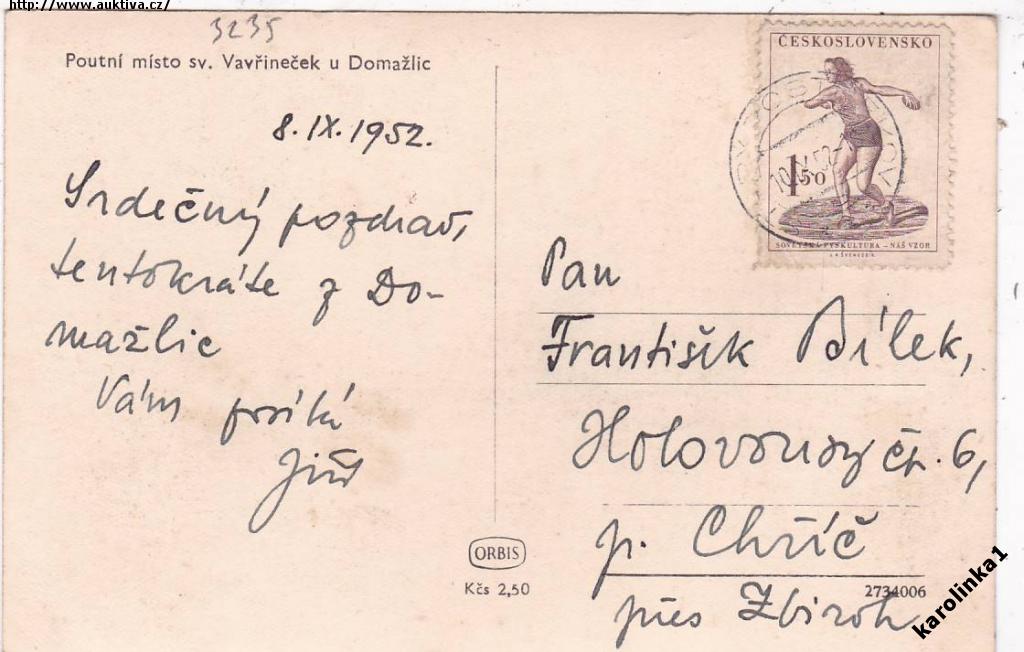 http://www.auktiva.cz/
3235
Poutní místo sv. Vavřineček u Domažlic
8. IX. 1952.
Srdečný pozdrav,
tentokráte z Do-
mažlic
Vám posílá
Jiří
ČESKOSLOVENSKO
10.IX.52
1 50
SOVĚTSKÁ FYSKULTURA – NÁŠ VZOR
Pan
František Bílek,
Holovousy čp. 6,
p. Chříč
přes Zbiroh
ORBIS
Kčs 2,50
2734006
karolinka1